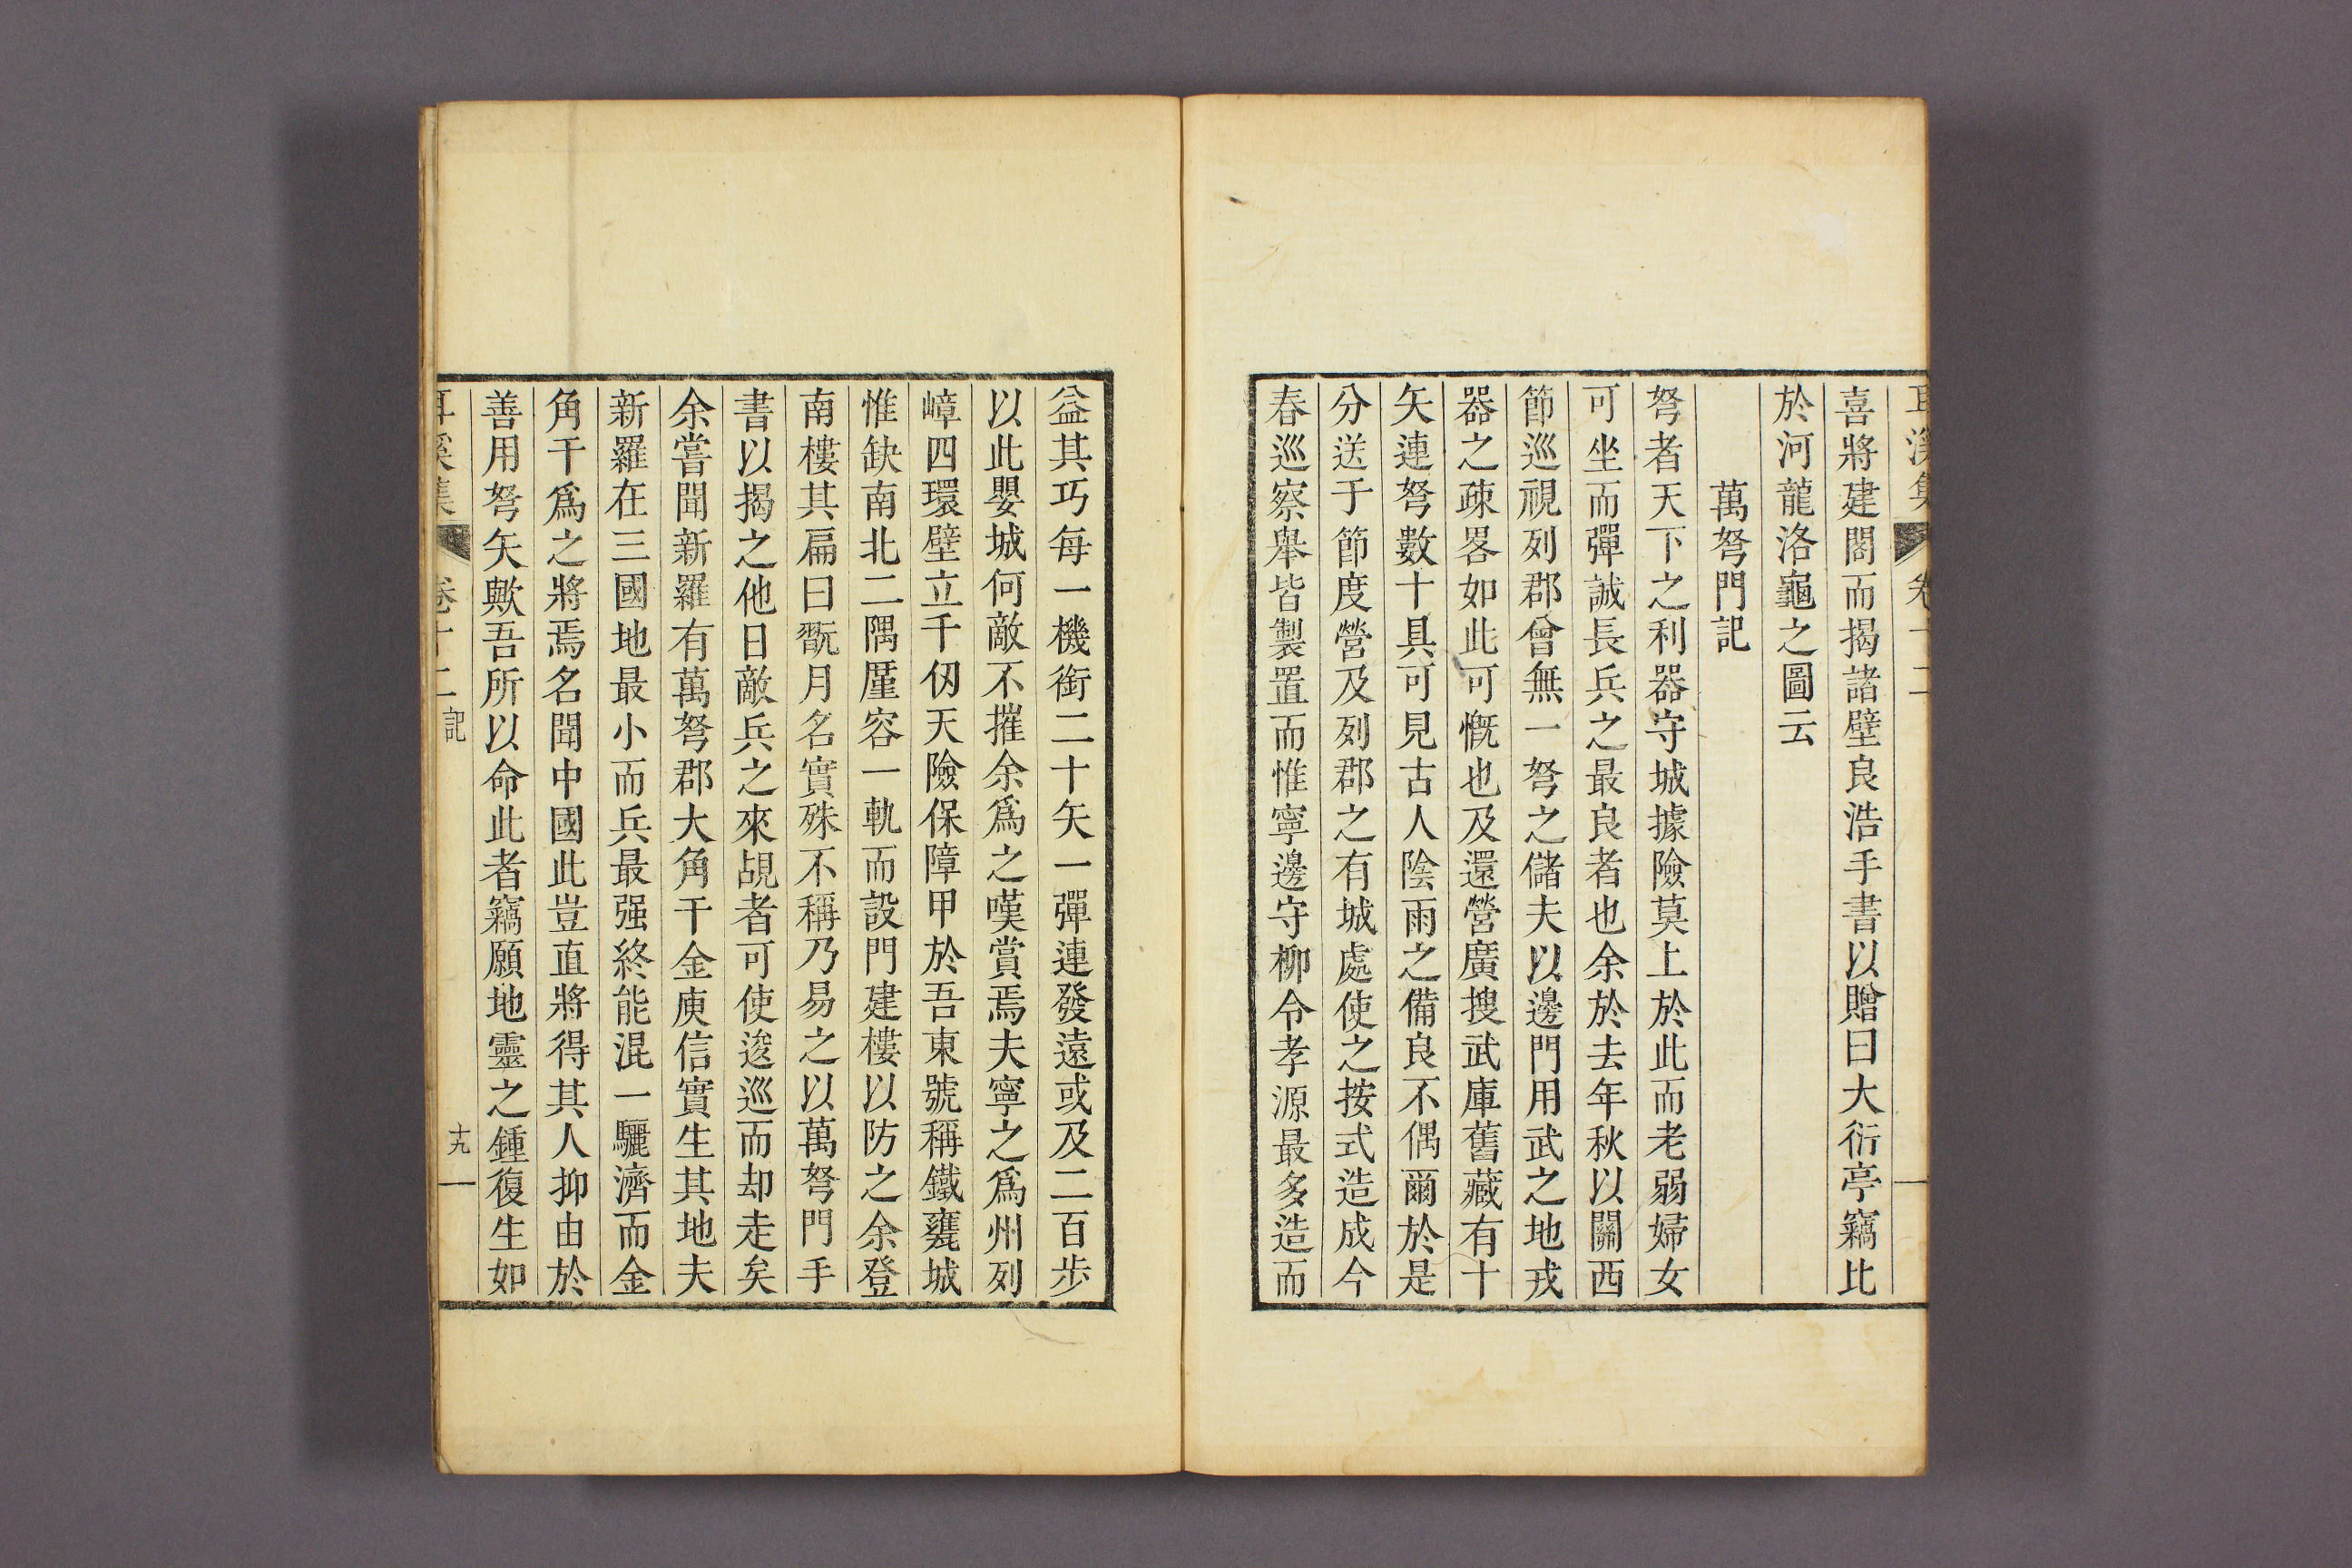 喜將建閣而揭諸壁良浩手書以贈曰大衍亭竊比
於河龍洛龜之圖云
萬弩門記
弩者天下之利器守城據險莫上於此而老弱婦女
可坐而彈誠長兵之最良者也余於去年秋以關西
節巡視列郡曾無一弩之儲夫以邊門用武之地戎
器之疎畧如此可慨也及還營廣搜武庫舊藏有十
矢連弩數十具可見古人陰雨之備良不偶爾於是
分送于節度營及列郡之有城處使之按式造成今
春巡察舉皆製置而惟寧邊守柳令孝源最多造而
益其巧每一機銜二十矢一彈連發遠或及二百步
以此嬰城何敵不摧余爲之嘆賞焉夫寧之爲州列
嶂四環壁立千仞天險保障甲於吾東號稱鐵甕城
惟缺南北二隅厪容一軌而設門建樓以防之余登
南樓其扁曰翫月名實殊不稱乃易之以萬弩門手
書以揭之他日敵兵之來覘者可使逡巡而却走矣
余嘗聞新羅有萬弩郡大角干金庾信實生其地夫
新羅在三國地最小而兵最强終能混一驪濟而金
角干爲之將焉名聞中國此豈直將得其人抑由於
善用弩矢歟吾所以命此者竊願地靈之鍾復生如
耳溪集 卷十二 記 十九